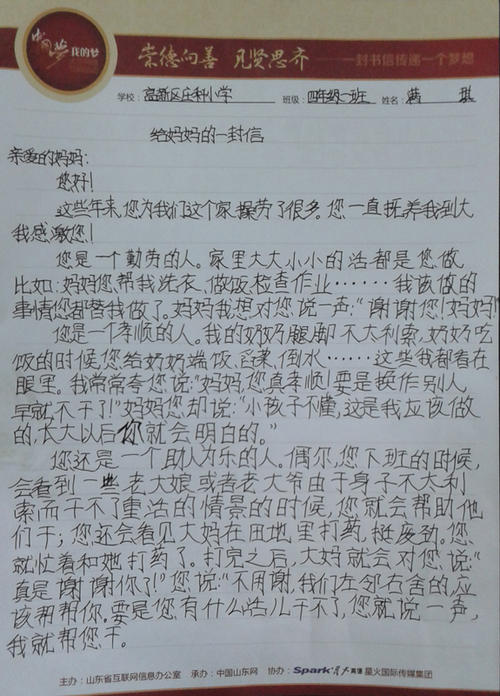 中国梦 我的梦
崇德向善 见贤思齐 一封书信传递一个梦想
学校：高新区庄科小学 班级：四年级一班 姓名：满 琪
给妈妈的一封信
亲爱的妈妈：
您好！
这些年来，您为我们这个家操劳了很多。您一直抚养我到大
我感激您！
您是一个勤劳的人。家里大大小小的活都是您做
比如：妈妈您帮我洗衣、做饭、检查作业……我该做的
事情您都替我做了。妈妈我想对您说一声：“谢谢您！妈妈”
您是一个孝顺的人。我的奶奶腿脚不太利索，奶奶吃
饭的时候您给奶奶端饭、舀菜、倒水……这些我都看在
眼里。我常常夸您说：“妈妈，您真孝顺！要是换作别人
早就不干了！”妈妈您却说：“小孩子不懂，这是我应该做
的，长大以后你就会明白的。”
您还是一个助人为乐的人。偶尔，您下班的时候，
会看到一些老大娘或者老大爷由于身子不大利
索而干不了重活的情景的时候，您就会帮助他
们干；您还会看见大妈在田地里打药，挺费劲。您
就忙着和她打药了。打完之后，大妈就会对您说：“
真是谢谢你了！”您说：“不用谢，我们左邻右舍的，应
该帮帮你。要是您有什么活儿干不了，您就说一声，
我就帮您干。
主办：山东省互联网信息办公室 承办：中国山东网 协办：Spark 星火英语 星火国际传媒集团